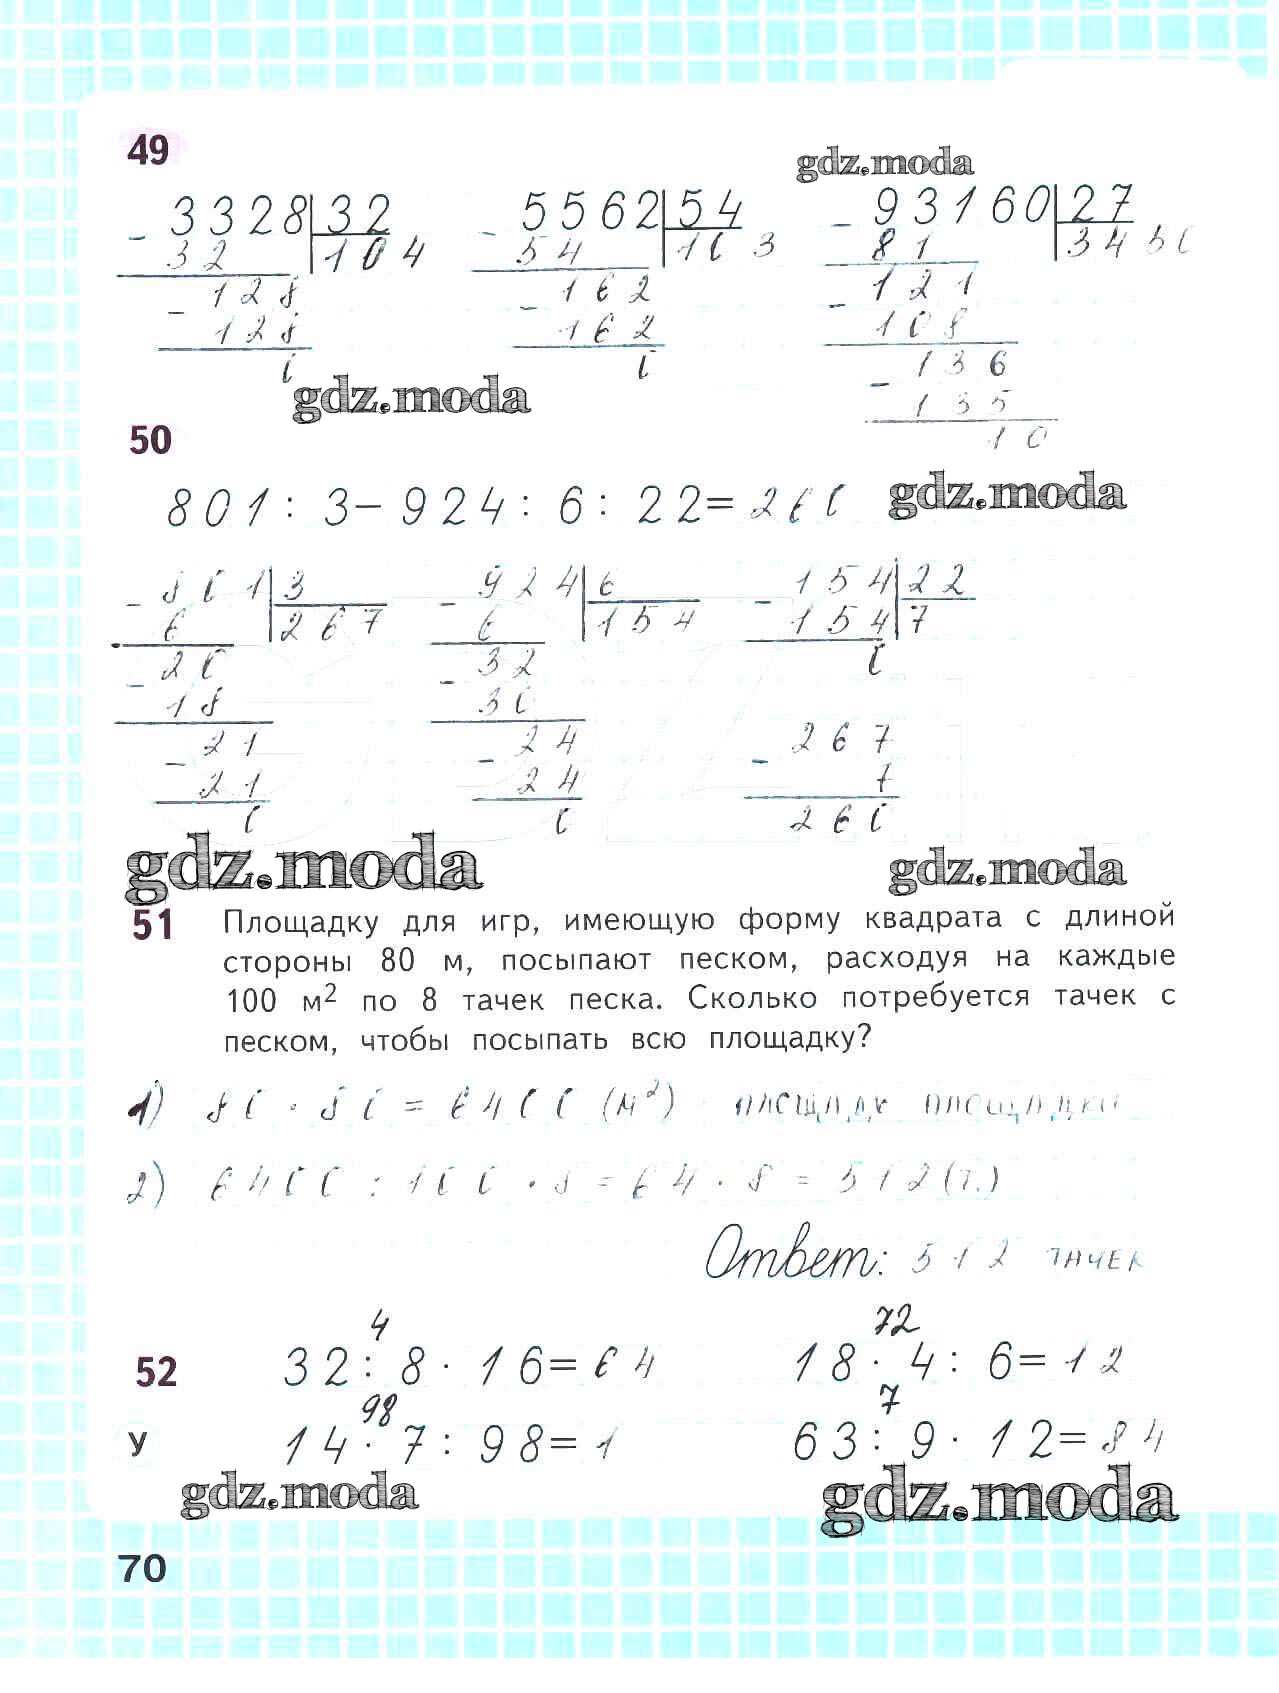 49
gdz.moda
3328 32 5562 54 93160 27
32 104 54 103 81 3450
128 162 121
128 162 108
0 0 136
gdz.moda 135
10
50
801 : 3 - 924 : 6 : 22 = 260 gdz.moda
801 3 924 6 154 22
6 267 6 154 154 7
20 32 0
18 30
21 24 267
21 24 7
0 0 260
gdz.moda gdz.moda
51 Площадку для игр, имеющую форму квадрата с длиной
стороны 80 м, посыпают песком, расходуя на каждые
100 м² по 8 тачек песка. Сколько потребуется тачек с
песком, чтобы посыпать всю площадку?
1) 80 · 80 = 6400 (м²) площадь площадки
2) 6400 : 100 · 8 = 64 · 8 = 512 (т.)
Ответ: 512 тачек
4 72
52 32 : 8 · 16 = 64 18 · 4 : 6 = 12
98 7
У 14 · 7 : 98 = 1 63 : 9 · 12 = 84
gdz.moda gdz.moda
70